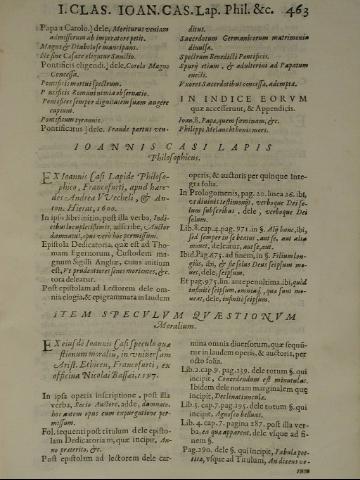 I. CLAS. IOAN. CAS. Lap. Phil. &c. 463
Papa a Carolo.] dele, Meriturus veniam
admissorum ab imperatore petit.
Magus & Diabolo se mancipans.
Ne sine Cæsare eligatur Sancitur.
Pontificis eligendi, dele, Carolo Magno
Concessa.
Pontificis mortui spectrum.
Pontificis Romani nimia observatio.
Pontifices semper dignitatem suam augere
cupiunt.
Pontificum tyrannis.
Pontificatus] dele. Fraude partus ven-
ditus.
Sacerdotum Germanicorum matrimonia
divulsa.
Spectrum Benedicti Pontificis.
Spurij etiam, & adulterini ad Papatum
evecti.
Vxores Sacerdotibus concessæ, ademptæ.
IN INDICE EORVM
quæ accesserunt, & Appendicis.
Ioan. 8. Papa, quem fœminam, &c.
Philippi Melanchthonis mors.
IOANNIS CASI LAPIS
Philosophicus.
EX Ioannis Casi Lapide Philoso-
phico, Francofurti, apud hære-
des Andreæ Wecheli, & An-
ton. Hierat, 1600.
In ipso libri initio, post illa verba, Iudi-
cibus locupletissimis, adscribe, Auctor
damnatus, opus vero hoc permissum.
Epistola Dedicatoria, quæ est ad Tho-
mam Egertonum, Custodem ma-
gnum Sigilli Angliæ, cuius initium
est, Vt prudentiores senes morientes, &c.
tota deleatur.
Post epistolam ad Lectorem dele om-
nia elogia, & epigrammata in laudem
operis, & auctoris per quinque inte-
gra folia.
In Prologomenis, pag. 20. linea 26. ibi,
verbique Dei so-
lum subscribas, dele, verboque Dei
solum.
Lib. 8. cap. 4. pag. 971. in §. Alij bone, ibi,
deleatur, aut se, aut.
Ibid. Pag. 875. ad finem, in §. Filium lon-
gius, ibi, & sic solus Deus seipsum mo-
uet, dele, seipsum.
Et pag. 975. lin. antepenultima ibi, quid
infinitè seipsum, omniaq́, quæ sunt mo-
ueret, dele, infinitè seipsum.
ITEM SPECVLVM QVÆSTIONVM
Moralium.
EX eiusdem Ioannis Casi speculo quæ-
stionum moralium, in vniuersam
Arist. Ethicen, Francofurti, ex
officina Nicolai Bassæi, 1597.
In ipsa operis inscriptione, post illa
verba, Socio Authore, adde, damnato,
hoc autem opus cum expurgatione per-
missum.
Fol. sequenti post titulum dele episto-
lam Dedicatoriam, quæ incipit, An-
no præterito, &c.
Post epistolam ad lectorem dele car-
mina omnia diuersorum, quæ sequun-
tur in laudem operis, & auctoris, per
octo folia.
Lib. 2. cap. 9. pag. 139. dele totum §. qui
incipit, Concedendum est minutulas.
Ibidem dele notam marginalem quæ
incipit, Declinatiuncula.
Lib. 5. cap. 7. pag. 195. dele totum §. qui
incipit, Agnosco bellum.
Lib. 4. cap. 7. pagina 287. post illa ver-
ba, ea quæ apparent, dele vsque ad fi-
nem §.
Pag. 290. dele §. qui incipit, Fabula poe-
tica, vsque ad Titulum, An dicent ve-